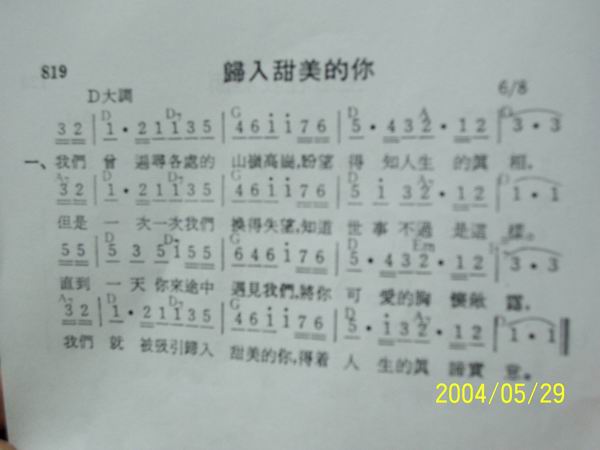 819 歸入甜美的你
D大調 6/8
D D7 G D A G
3 2 | 1 • 2 1 1 3 5 | 4 6 i i 7 6 | 5 • 4 3 2 • 1 2 | 3 • 3
一、我們 曾 遍尋各處的 山嶺高崗,盼望 得 知人生 的真 相。
A7 D D7 G D A7 D
3 2 | 1 • 2 1 1 3 5 | 4 6 i i 7 6 | 5 i 3 2 • 1 2 | 1 • 1
但是 一 次一次我們 換得失望,知道 世 事 不過 是這 樣。
D D7 G D Em
5 5 | 5 3 5 i 5 5 | 6 4 6 i 7 6 | 5 • 4 3 2 • 1 2 | 3 • 3
直到 一 天 你來途中 遇見我們,將你 可 愛的胸 懷敞 露。
A7 D D7 G D A7 D
3 2 | 1 • 2 1 1 3 5 | 4 6 i i 7 6 | 5 • i 3 2 • 1 2 | 1 • 1
我們 就 被吸引歸入 甜美的你,得着 人 生的真 諦實 意。
2004/05/29